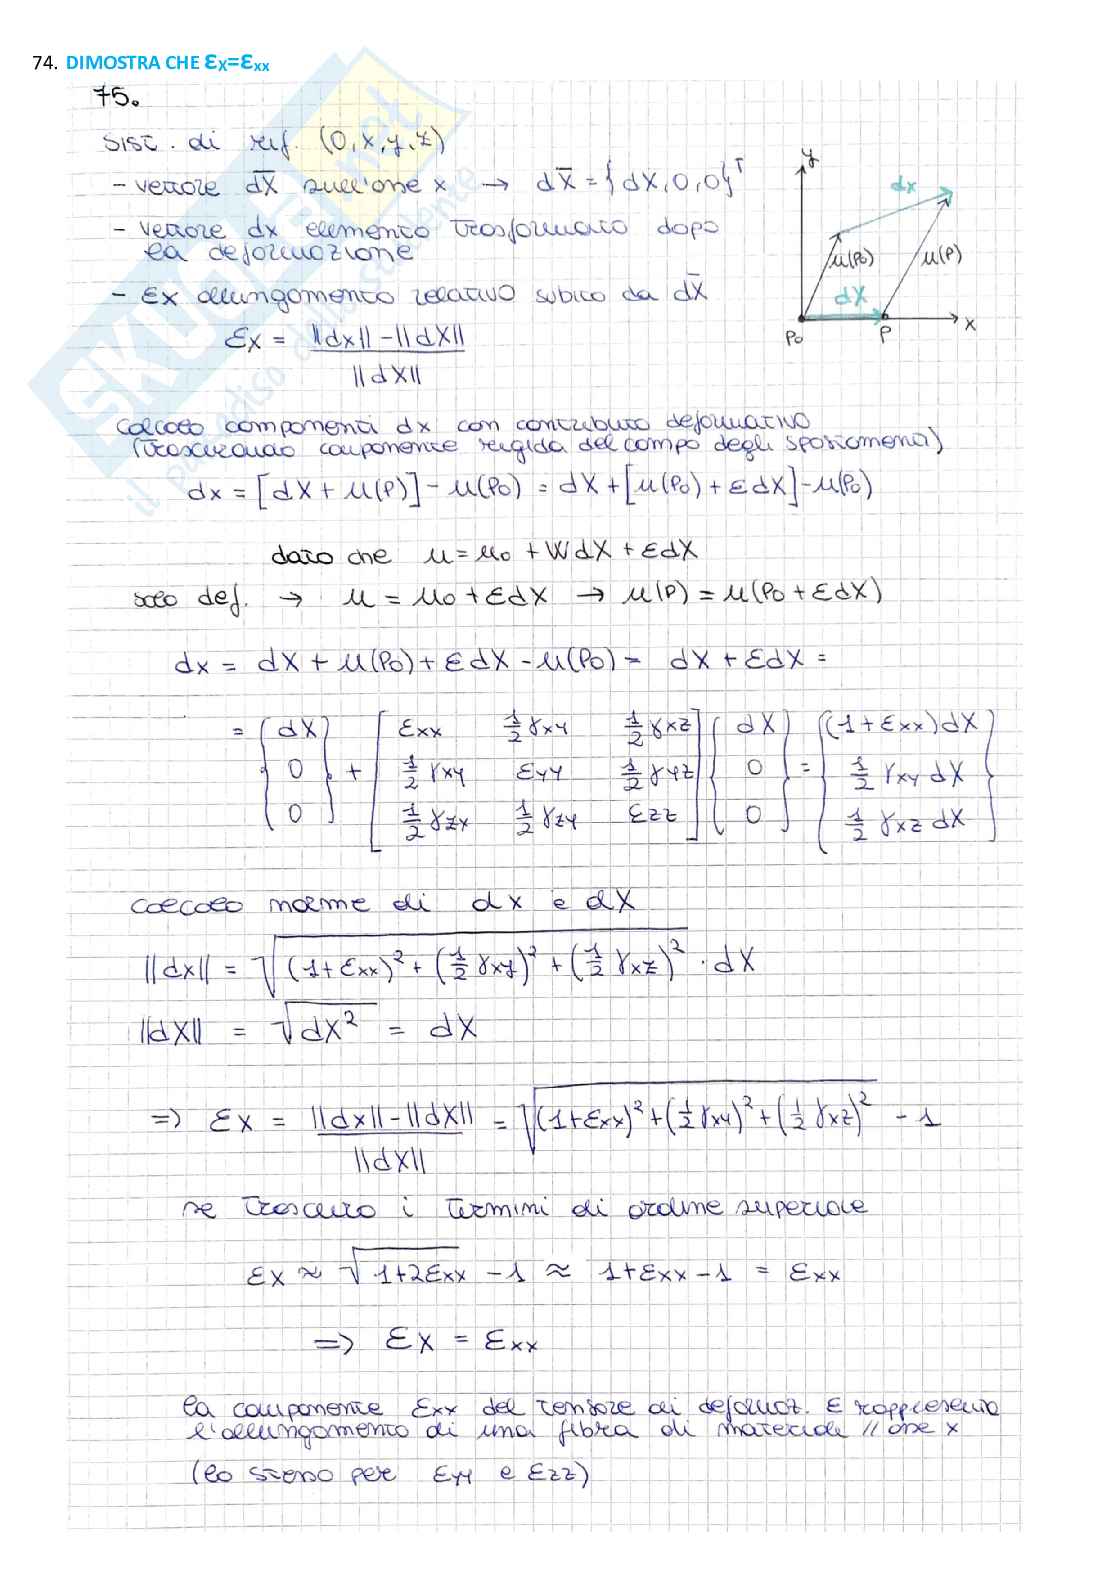 74. DIMOSTRA CHE εx=εxx
75.
SIST. di rif. (O,x,y,z)
- vettore dX̄ sull'asse x → dX̄ = {dX,0,0}ᵀ
- vettore dx elemento trasformato dopo
la deformazione
- εx allungamento relativo subito da dX̄
εx = ||dx|| - ||dX||
||dX||
y
dx
u(P₀)
u(P)
dX
P₀
P
x
calcolo componenti dx con contributo deformativo
(trascurando componente rigida del campo degli spostamenti)
dx = [dX + u(P)] - u(P₀) = dX + [u(P₀) + εdX] - u(P₀)
dato che u = u₀ + WdX + εdX
solo def. → u = u₀ + εdX → u(P) = u(P₀ + εdX)
dx = dX + u(P₀) + εdX - u(P₀) = dX + εdX =
= {dX + [εxx 1/2 γxy 1/2 γxz] {dX} = {(1+εxx)dX
0 1/2 γxy εyy 1/2 γyz 0 1/2 γxy dX
0} 1/2 γzx 1/2 γzy εzz 0 1/2 γxz dX}
calcolo norme di dx e dX
||dx|| = √((1+εxx)² + (1/2 γxy)² + (1/2 γxz)²) · dX
||dX|| = √(dX²) = dX
=> εx = ||dx|| - ||dX|| / ||dX|| = √((1+εxx)² + (1/2 γxy)² + (1/2 γxz)²) - 1
se trascuro i termini di ordine superiore
εx ≈ √(1+2εxx) - 1 ≈ 1+εxx-1 = εxx
=> εx = εxx
la componente εxx del tensore di deformaz. ε rappresenta
l'allungamento di una fibra di materiale // asse x
(lo stesso per εyy e εzz)
SKUOLA.net
il paradiso dello studente